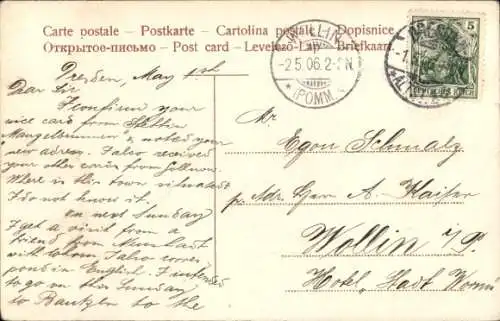 Carte postale – Postkarte – Cartolina postale – Dopisnice
Открытое-письмо – Post card – Levelező-Lap – Briefkaart
WOLLIN
-2.5.06.2-
(POMM.)
5
DEUTSCHES REICH
Dresden, May 1st
Dear Sir
I confirm your
nice card from Stettin
& noted your
new adress. I also received
your other card from Gollnow.
Where is this town situated?
I do not know it.
On next Sunday
I get a visit from a
friend, from
with whom I also corres-
pond in English. I intend
to go on this Sunday
to Bautzen to the
Mr
Egon Schmalz
p. Adr. Herr A. Kaiser
Wollin i/P.
Hotel "Stadt Worms"